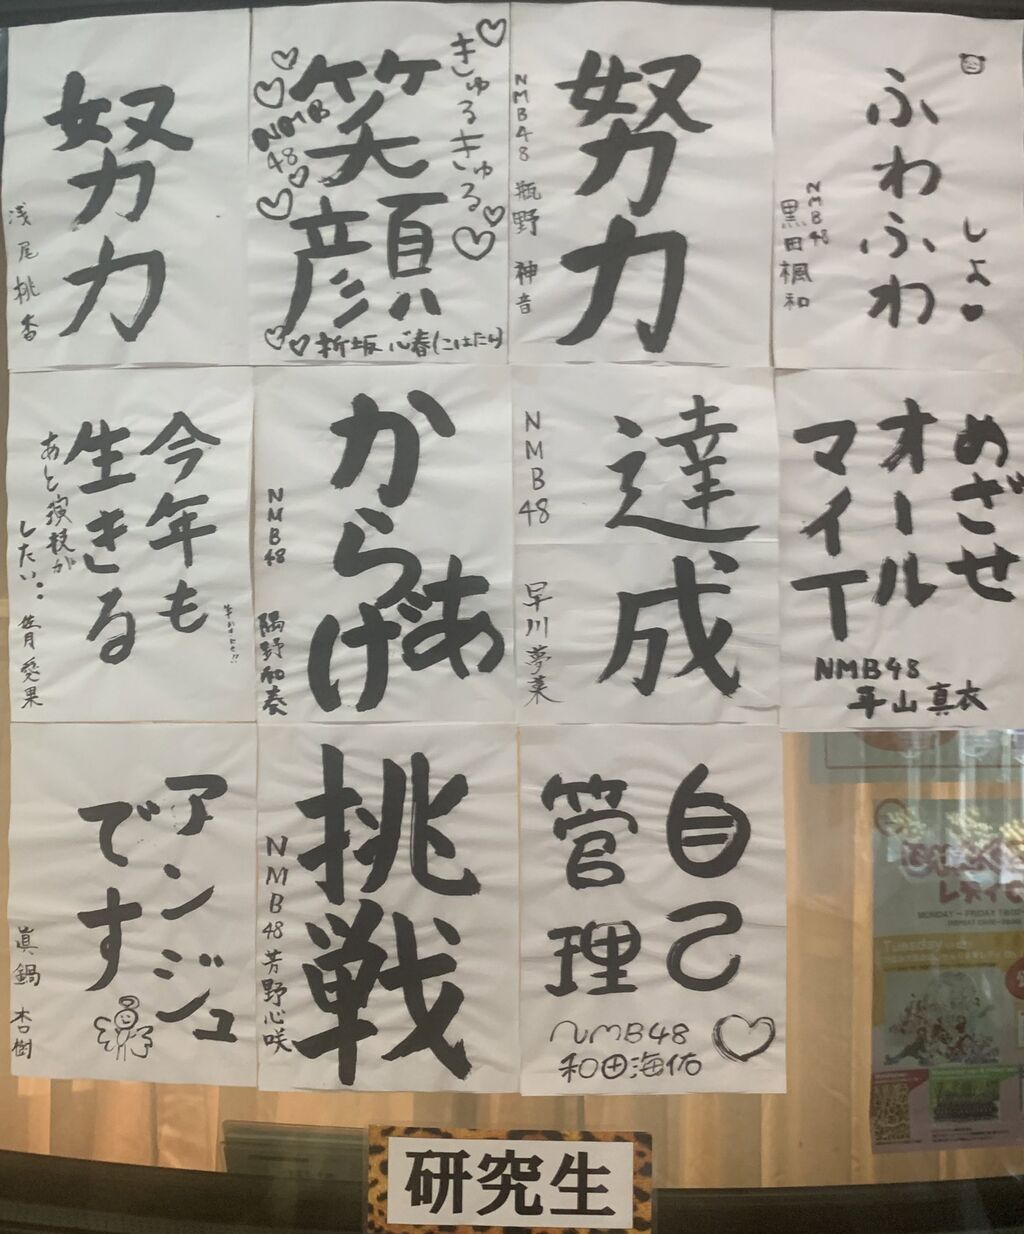 努力
浅尾桃香
笑顔
きゅるきゅる
NMB
48
新坂 心春(こはたん)
努力
NMB48 瓶野 神音
ふわふわ
しよ♥
NMB48
黒田楓和
今年も
生きる
あと演技が
したい
青 愛果
からあげ
NMB48 隅野和奏
達成
NMB48
早川夢菜
めざせ
オール
マイT
NMB48
平山真衣
アンジュ
です
眞鍋 杏樹
挑戦
NMB48 芳野心咲
自己
管理
NMB48
和田海佑
研究生
MONDAY~FRIDAY
Tuesday